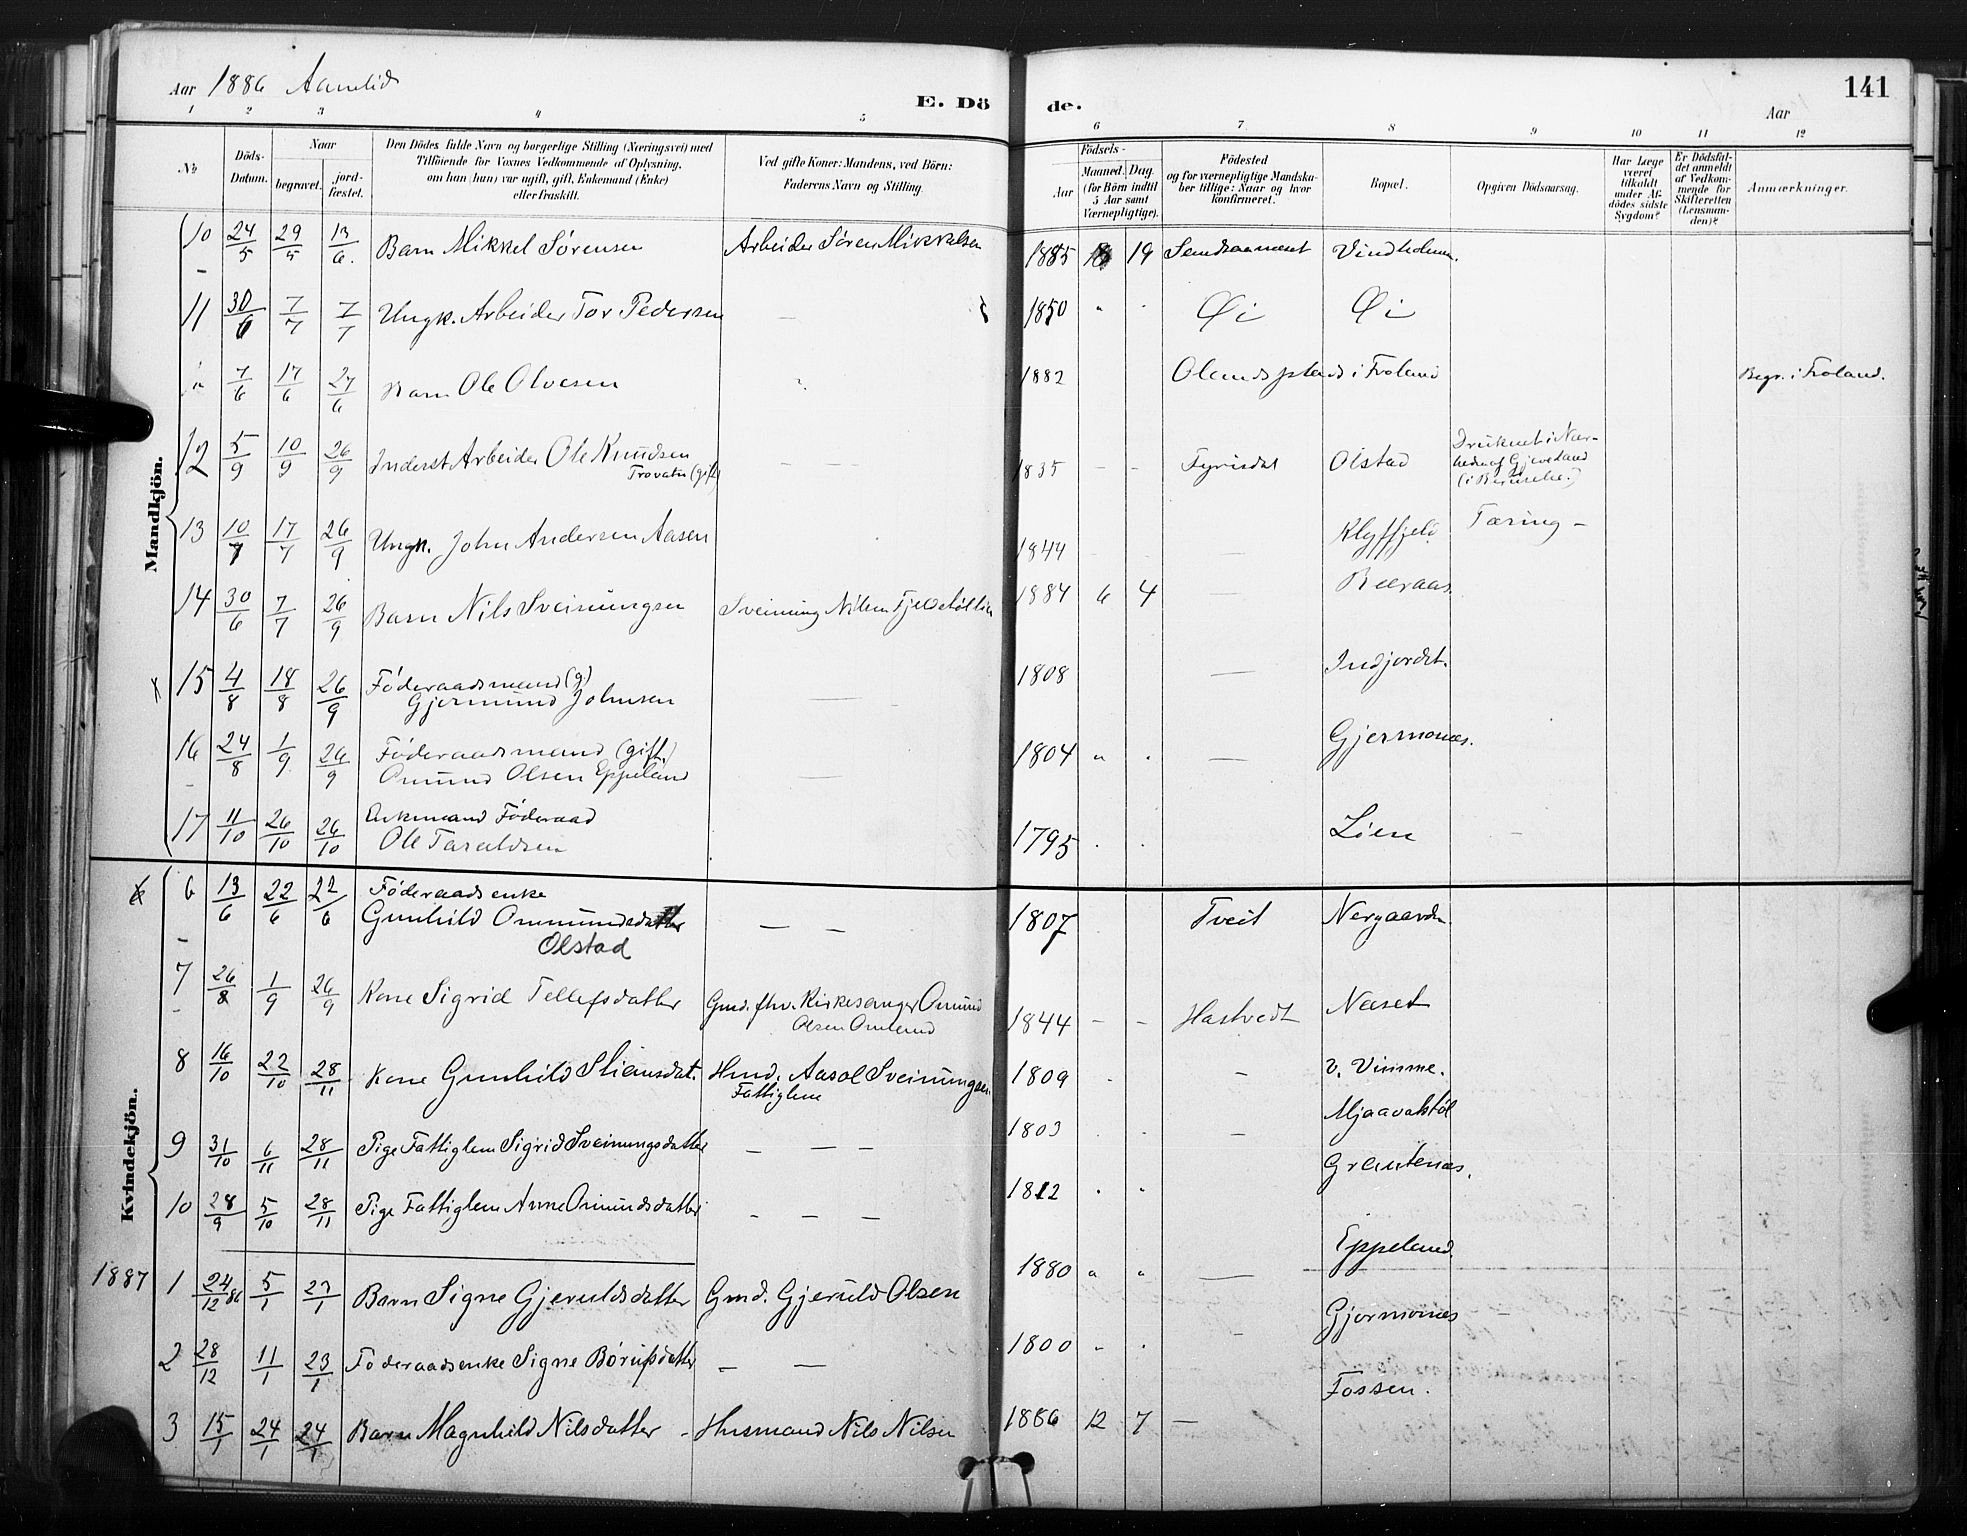 Aar 1886 Aamlid
E. Dö de.
Aar
141
1 2 3 4 5 6 7 8 9 10 11 12
No
Döds-Datum.
Naar
begravet.
jord-fæstet.
Den Dödes fulde Navn og borgerlige Stilling (Næringsvei) med
Tilföiende for Voxnes Vedkommende af Oplysning,
om han (hun) var ugift, gift, Enkemand (Enke)
eller fraskilt.
Ved gifte Koner: Mandens, ved Börn:
Faderens Navn og Stilling.
Födsels-
Aar
Maaned. Dag.
(for Börn indtil
5 Aar samt
Værnepligtige).
Födested
og for værnepligtige Mandska-
ber tillige: Naar og hvor
konfirmeret.
Bopæl.
Opgiven Dödsaarsag.
Har Læge
været
tilkaldt
under Af-
dödes sidste
Sygdom?
Er Dödsfal-
det anmeldt
af Vedkom-
mende for
Skifteretten
(Lensman-
den)?
Anmærkninger.
Mandkjön.
10 24/5 29/5 13/6. Barn Mikkel Sørensen Arbeider Søren Mikkelsen 1885 19 Vindholmen.
11 30/6 7/7 7/7 Ungk. Arbeider Tor Pedersen — 1850 " Øi Øi
7/6 17/6 27/6 Barn Ole Olvesen " 1882 Olandsplads i Froland Begr. i Froland.
12 5/9 10/9 26/9 Inderst Arbeider Ole Knudsen — — 1835 — — Fyrisdal Olstad Druknet i Nær-
Trovatn (gift) heden af Gjeveland
13 10/7 17/7 26/9 Ungk. John Andersen Aasen 1844 — — — Klyffjeld Tæring —
14 30/6 7/7 26/9 Barn Nils Sveinungsen Sveinung Nilsen 1884 6 4 —
x 15 4/8 18/8 26/9 Föderaadsmand (g)
Gjermund Johnsen — 1808 — Indjordet.
16 24/8 1/9 26/9 Föderaadsmand (gift)
Omund Olsen Eppeland — 1804 " . — Gjermones.
17 11/10 26/10 26/10 Enkemand Föderaad
Ole Taraldsen 1795 . . Lien —
Kvindekjön.
6 13/6 22/6 22/6 Föderaadsenke
Gunhild Ommundsdatter
Olstad — — 1807 Tveit
7 26/8 1/9 26/9 Kone Sigrid Tellefsdatter Gmd. fhv. Kirkesanger Omund
Olsen Omlund 1844 — — Hastvedt Næset
8 16/10 22/10 28/11 Kone Gunhild Stiansdat. Hmd. Aasol Sveinungsen
Fattiglem 1809 . — v. Vimme.
9 31/10 6/11 28/11 Pige Fattiglem Sigrid Sveinungsdatter — — — 1803 . . — Mjaavatstöl
10 28/9 5/10 28/11 Pige Fattiglem Anne Omundsdatter — — — 1812 . " Grautenæs.
1887 1 24/12 86 5/1 23/1 Barn Signe Gjeruldsdatter Gmd. Gjeruld Olsen 1880 " " — Eppeland.
2 28/12 11/1 23/1 Föderaadsenke Signe Börufsdatter — — 1800 " . — Gjermones —
3 15/1 24/1 24/1 Barn Magnhild Nilsdatter - Husmand Nils Nilsen 1886 12 7 — Fossen.